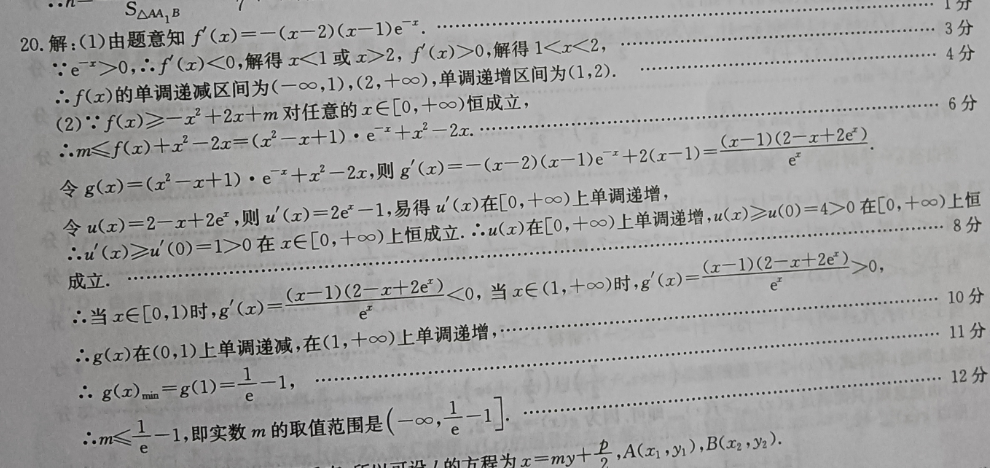 S△AA₁B
1分
20.解:(1)由题意知 f′(x)=-(x-2)(x-1)e⁻ˣ.
∵e⁻ˣ>0,∴f′(x)<0,解得 x<1 或 x>2, f′(x)>0,解得 1<x<2, 3分
∴f(x)的单调递减区间为(-∞,1),(2,+∞),单调递增区间为(1,2). 4分
(2)∵f(x)≥-x²+2x+m 对任意的 x∈[0,+∞)恒成立,
∴m≤f(x)+x²-2x=(x²-x+1)·e⁻ˣ+x²-2x. 6分
令 g(x)=(x²-x+1)·e⁻ˣ+x²-2x,则 g′(x)=-(x-2)(x-1)e⁻ˣ+2(x-1)=(x-1)(2-x+2eˣ)/eˣ.
令 u(x)=2-x+2eˣ,则 u′(x)=2eˣ-1,易得 u′(x)在[0,+∞)上单调递增,
∴u′(x)≥u′(0)=1>0 在 x∈[0,+∞)上恒成立.∴u(x)在[0,+∞)上单调递增,u(x)≥u(0)=4>0 在[0,+∞)上恒
成立. 8分
∴当 x∈[0,1)时,g′(x)=(x-1)(2-x+2eˣ)/eˣ<0, 当 x∈(1,+∞)时,g′(x)=(x-1)(2-x+2eˣ)/eˣ>0,
∴g(x)在(0,1)上单调递减,在(1,+∞)上单调递增, 10分
∴ g(x)min=g(1)=1/e-1, 11分
∴m≤1/e-1,即实数 m 的取值范围是(-∞,1/e-1]. 12分
所以可设 l 的方程为 x=my+p/2,A(x₁,y₁),B(x₂,y₂).